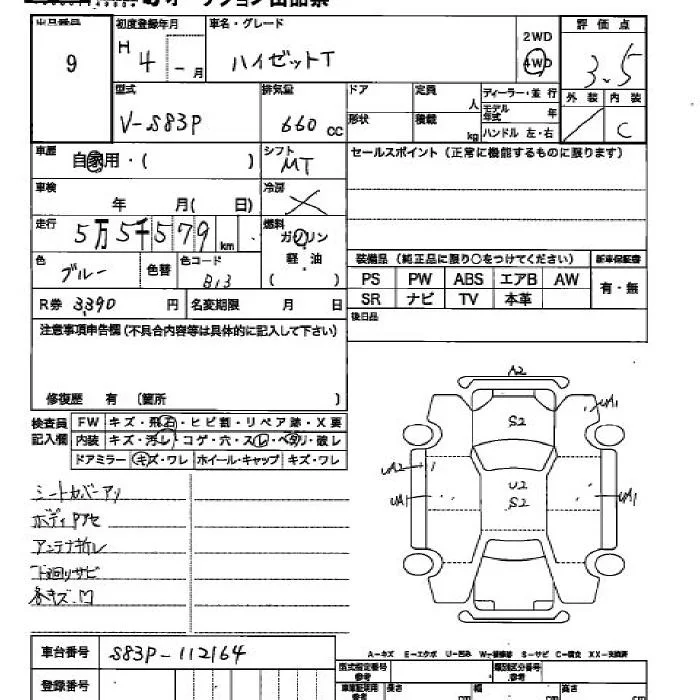 出品番号 初度登録年月 車名・グレード 評価点
9 H 4 - 月 ハイゼットT 2WD 4WD 3.5
型式 排気量 ドア 定員 人 ディーラー・並行 外装 内装
V-S83P 660 CC 形状 積載 kg モデル年式 年 ハンドル 左・右 C
車歴 自家用・( ) シフト MT セールスポイント(正常に機能するものに限ります)
車検 年 月( 日) 冷房
走行 5万5千579 km 燃料 ガソリン
軽・油
( )
色 ブルー 色替 色コード B13 装備品(純正品に限り○をつけてください) 新車保証書
PS PW ABS エアB AW 有・無
R券 3,390 円 名変期限 月 日 SR ナビ TV 本革
後日品
注意事項申告欄(不具合内容等は具体的に記入して下さい)
修復歴 有 〔箇所 〕
検査員記入欄 FW キズ・飛石・ヒビ割・リペア跡・X要
内装 キズ・汚レ・コゲ・穴・スレ・ヘタリ・破レ
ドアミラー キズ・ワレ ホイール・キャップ キズ・ワレ
A2
S2
UA1
UA2
U2
S2
UA1
UA1
シートカバーアリ
ボディクアセ
アンテナ折レ
下廻リサビ
各キズ凹
A-キズ E-エクボ U-凹み W-補修跡 S-サビ C-腐食 XX-交換済
車台番号 S83P-112164 型式指定番号 類別区分番号
登録番号 長さ 幅 高さ